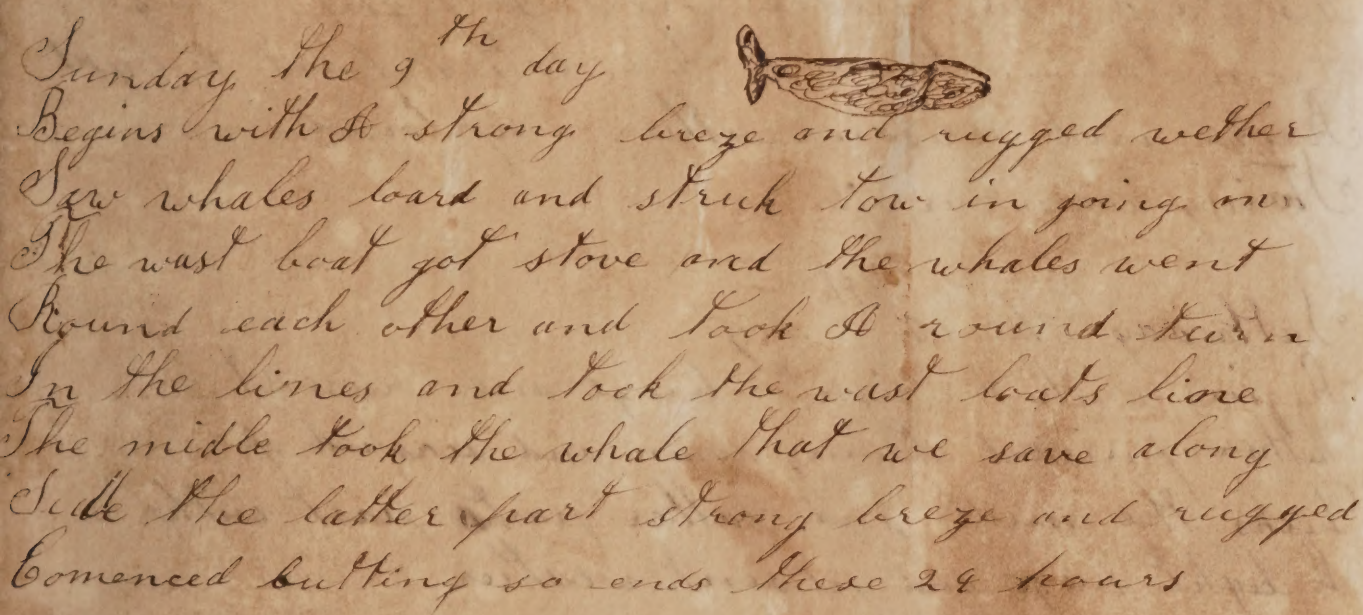 Sunday the 9th day
Begins with A strong breze and rugged wether
Saw whales loard and struk tow in going on
The wast boat got stove and the whales went
Round each other and took A round turn
In the lines and took the wast boats line
The midle took the whale that we save along
Side the latter part strong breze and rugged
Comenced cutting so ends these 24 hours